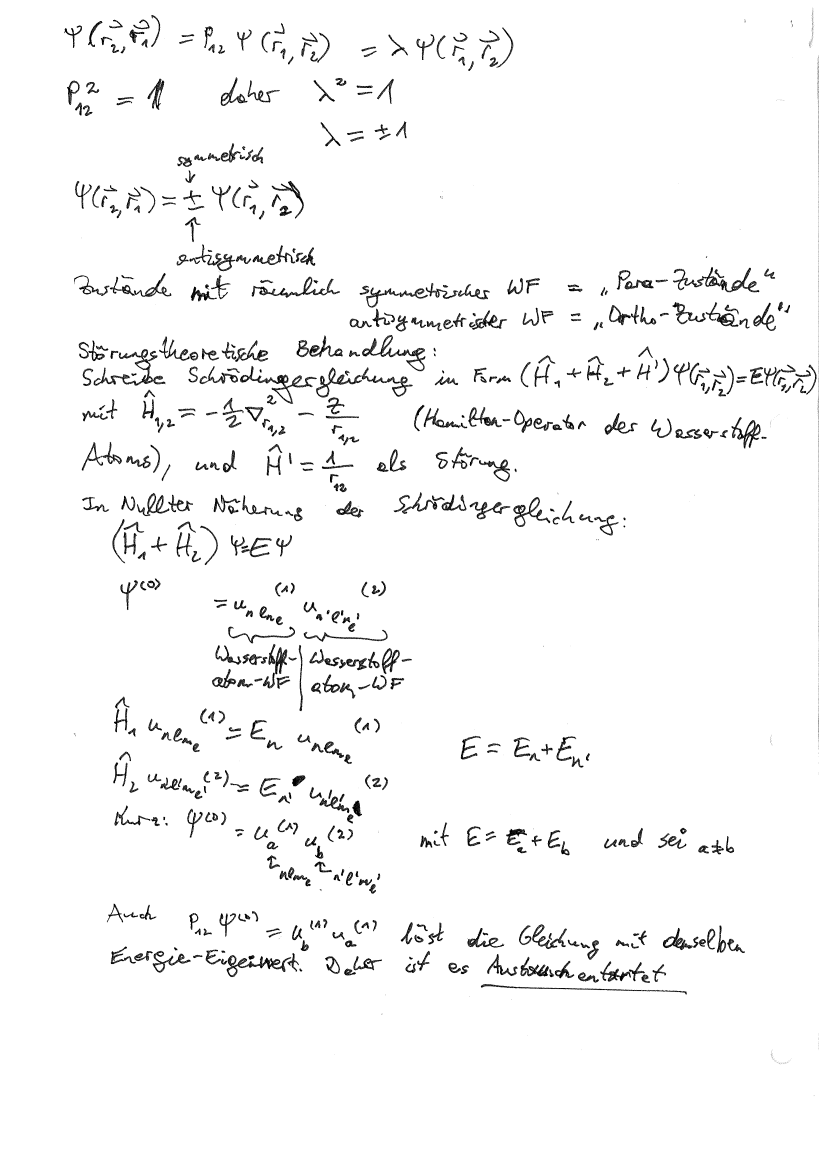 Ψ(r⃗₂, r⃗₁) = P₁₂ Ψ(r⃗₁, r⃗₂) = λ Ψ(r⃗₁, r⃗₂)
P₁₂² = 1 daher λ² = 1
λ = ±1
symmetrisch
↓
Ψ(r⃗₂, r⃗₁) = ± Ψ(r⃗₁, r⃗₂)
↑
antisymmetrisch
Zustände mit räumlich symmetrischer WF = „Para-Zustände“
antisymmetrischer WF = „Ortho-Zustände“
Störungstheoretische Behandlung:
Schreibe Schrödingergleichung in Form (Ĥ₁ + Ĥ₂ + Ĥ') Ψ(r⃗₁,r⃗₂) = EΨ(r⃗₁,r⃗₂)
mit Ĥ₁,₂ = -1/2 ∇²_r₁,₂ - Z/r₁,₂ (Hamilton-Operator des Wasserstoff-
Atoms), und Ĥ' = 1/r₁₂ als Störung.
In Nullter Näherung der Schrödingergleichung:
(Ĥ₁ + Ĥ₂) Ψ = EΨ
Ψ⁽⁰⁾ = u_nlm_l⁽¹⁾ u_n'l'm_l'⁽²⁾
Wasserstoff- | Wasserstoff-
atom-WF | atom-WF
Ĥ₁ u_nlm_l⁽¹⁾ = E_n u_nlm_l⁽¹⁾ E = E_n + E_n'
Ĥ₂ u_n'l'm_l'⁽²⁾ = E_n' u_n'l'm_l'⁽²⁾
Kurz: Ψ⁽⁰⁾ = u_a⁽¹⁾ u_b⁽²⁾ mit E = E_a + E_b und sei a≠b
↑nlm_l ↑n'l'm_l'
Auch P₁₂ Ψ⁽⁰⁾ = u_b⁽¹⁾ u_a⁽¹⁾ löst die Gleichung mit demselben
Energie-Eigenwert. Daher ist es Austauschentartet